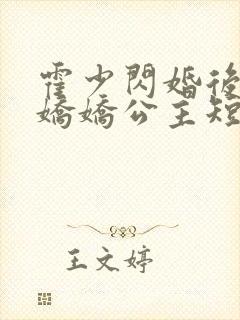 霍少閃婚後
嬌嬌公主短
王文婷